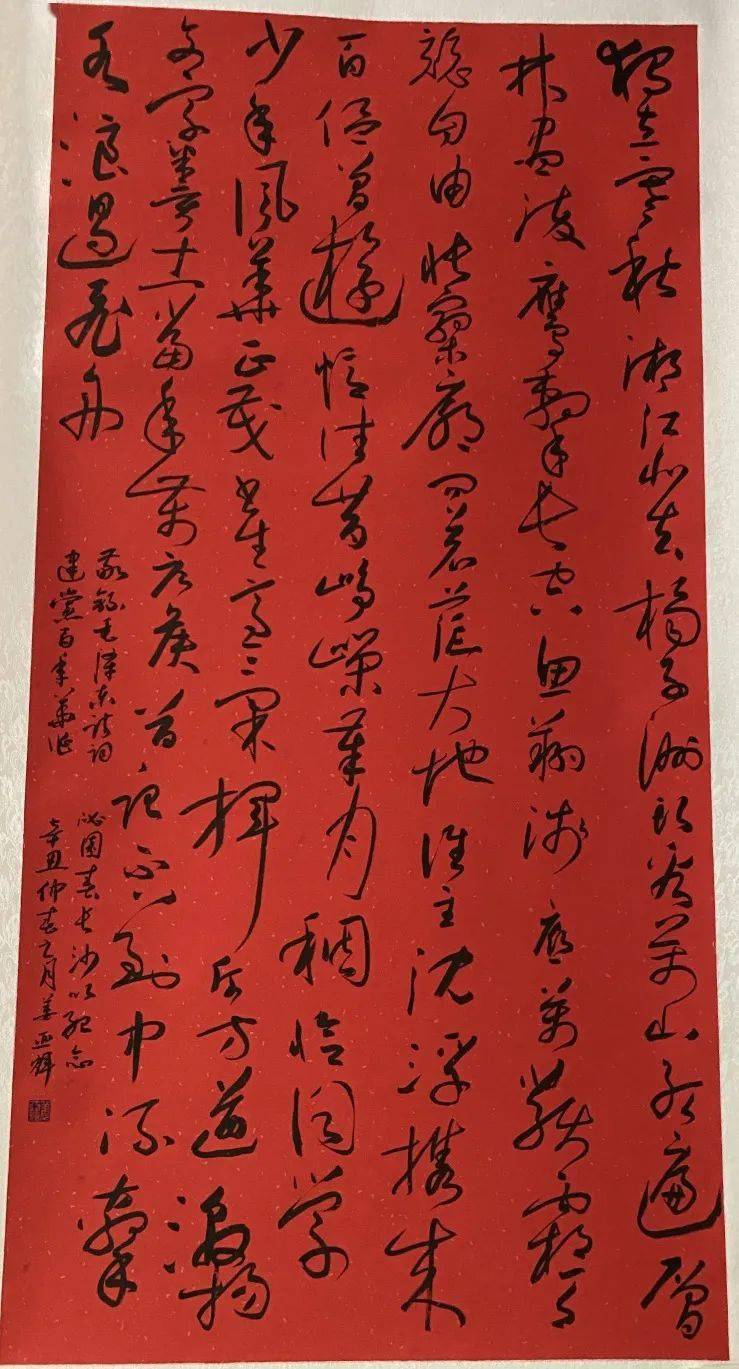 獨立寒秋湘江北去橘子洲头看万山红遍層
林尽染鷹擊长空鱼翔浅底萬類霜天
競自由怅寥廓问苍茫大地谁主沈浮携来
百侣曾遊忆往昔峥嵘岁月稠恰同学
少年风華正茂书生意气挥斥方遒激扬
文字粪土当年万户侯曾记否到中流擊
水浪遏飞舟
敬録毛泽东诗词沁园春长沙以纪念
建党百年華诞辛丑仲春之月姜亚辉